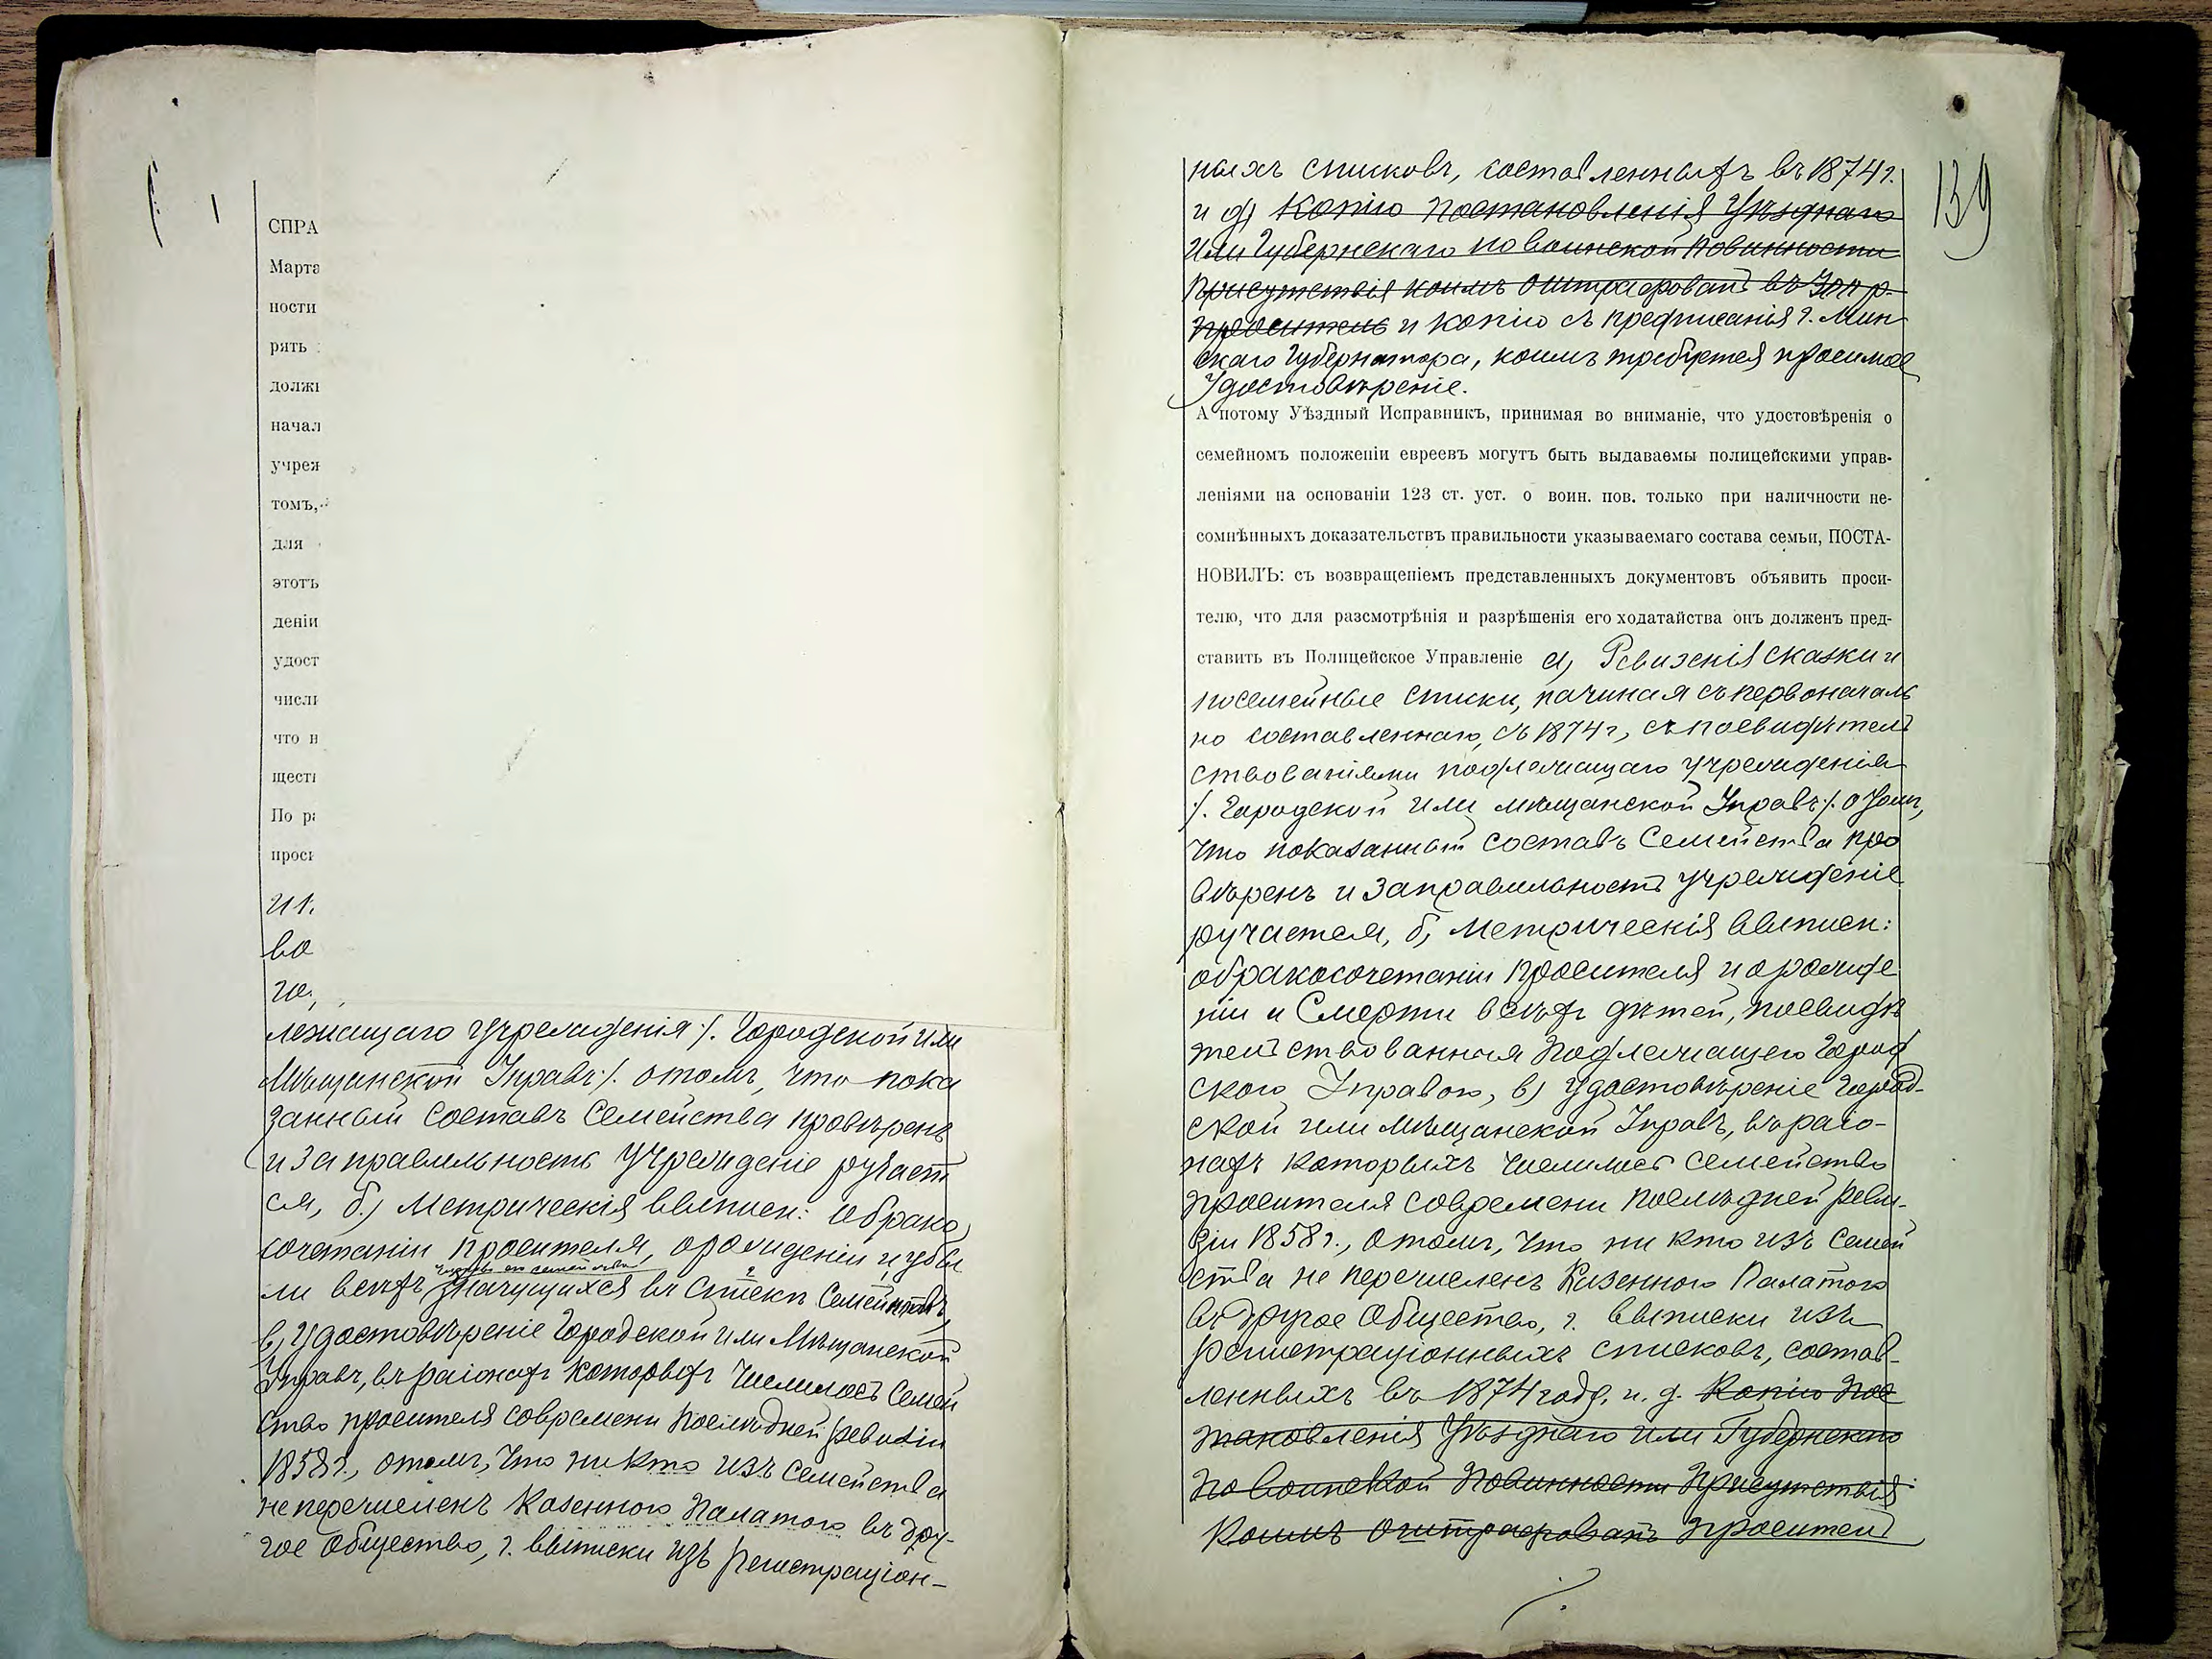 СПРА
Марта
ности
рять
должн
начал
учреж
томъ,
для
этотъ
деніи
удост
числи
что н
щест
По ра
проси
и п.
во
го,
лежащаго учрежденія /. Городской или
Мѣщанской Управъ /. о томъ, что пока
занный составъ семейства провѣренъ
и за правильность учрежденіе ручает
ся, б) Метрическія выписи: о брако
сочетаніи просителя, о рожденіи и убы
ли всѣхъ значущихся въ спискѣ семейства,
в) Удостовѣреніе Городской или Мѣщанской
Управъ, въ раіонахъ которыхъ числилось семей
ство просителя со времени послѣдней ревизіи
1858 г., о томъ, что никто изъ семейства
не перечисленъ Казенною Палатою въ дру-
гое общество, г. выписки изъ регистраціон-
139
ныхъ списковъ, составленныхъ въ 1874 г.
и д) копію постановленія Уѣзднаго
или Губернскаго по воинской повинности
присутствія коимъ оштрафованъ въ 300 р.
проситель и копію съ предписанія г. Мин
скаго Губернатора, коимъ требуется просимое
удостовѣреніе.
А потому Уѣздный Исправникъ, принимая во вниманіе, что удостовѣренія о
семейномъ положеніи евреевъ могутъ быть выдаваемы полицейскими управ-
леніями на основаніи 123 ст. уст. о воин. пов. только при наличности не-
сомнѣнныхъ доказательствъ правильности указываемаго состава семьи, ПОСТА-
НОВИЛЪ: съ возвращеніемъ представленныхъ документовъ объявить проси-
телю, что для разсмотрѣнія и разрѣшенія его ходатайства онъ долженъ пред-
ставить въ Полицейское Управленіе а) Ревизскія сказки и
посемейные списки, начиная съ первоначаль
но составленнаго, съ 1874 г, съ посвидѣтель
ствованіями подлежащаго учрежденія
/. Городской или мѣщанской Управъ /. о томъ,
что показанный составъ семейства про
вѣренъ и за правильность учрежденіе
ручается, б) Метрическія выписи:
о бракосочетаніи просителя и о рожде
ніи и смерти всѣхъ дѣтей, посвидѣ
тельствованныя подлежащею Город
скою Управою, в) удостовѣреніе Город-
ской или мѣщанской Управъ, въ раіо-
нахъ которыхъ числилось семейство
просителя со времени послѣдней реви-
зіи 1858 г., о томъ, что ни кто изъ семей
ства не перечисленъ Казенною Палатою
въ другое общество, г. выписки изъ
регистраціонныхъ списковъ, состав-
ленныхъ въ 1874 году, и д. Копію пос
тановленія Уѣзднаго или Губернскаго
по воинской повинности присутствія
коимъ оштрафованъ проситель